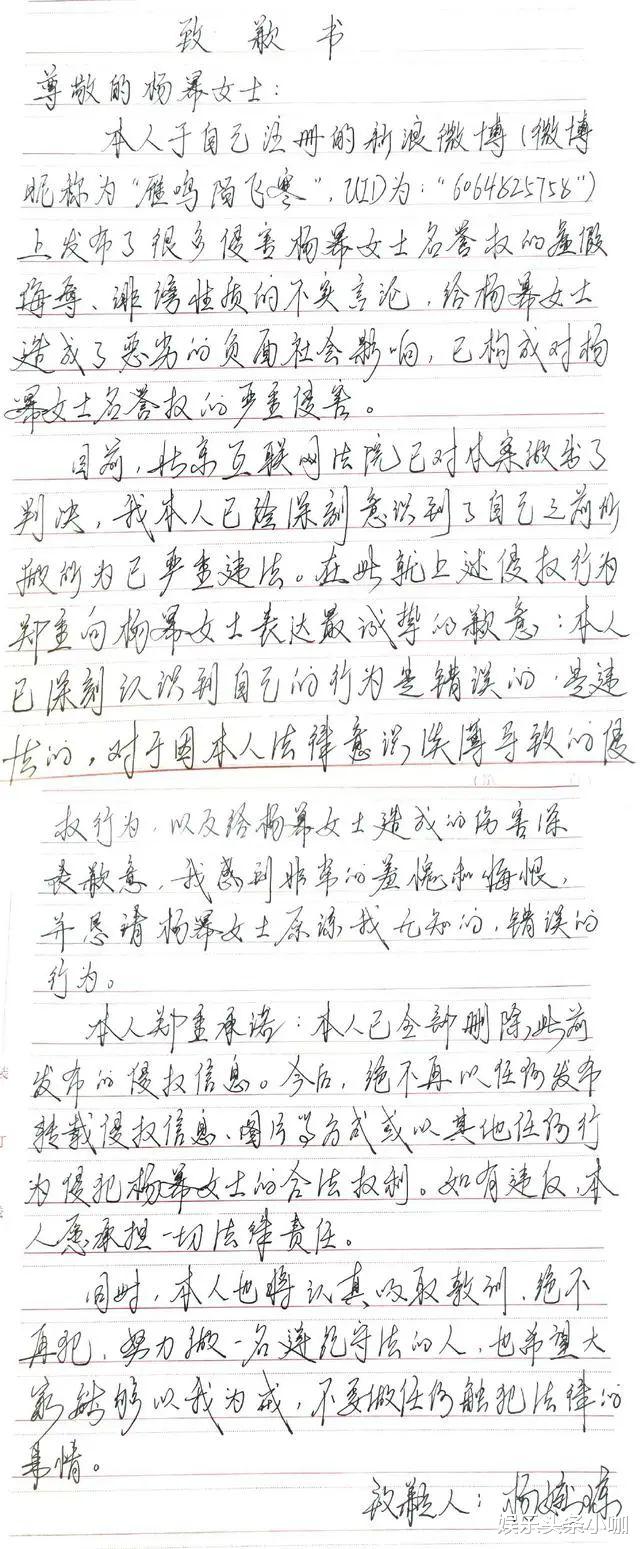 致歉书
尊敬的杨幂女士：
本人于自己注册的新浪微博（微博
昵称为“雁鸣陌飞寒”，UID为：“6064825758”）
上发布了很多侵害杨幂女士名誉权的虚假
侮辱、诽谤性质的不实言论，给杨幂女士
造成了恶劣的负面社会影响，已构成对杨
幂女士名誉权的严重侵害。
目前，北京互联网法院已对本案做出了
判决，我本人已经深刻意识到了自己之前所
做所为已严重违法。在此就上述侵权行为
郑重向杨幂女士表达最诚挚的歉意：本人
已深刻认识到自己的行为是错误的，是违
法的，对于因本人法律意识淡薄导致的侵
权行为，以及给杨幂女士造成的伤害深
表歉意，我感到非常的羞愧和悔恨，
并恳请杨幂女士原谅我无知的，错误的
行为。
本人郑重承诺：本人已全部删除此前
发布的侵权信息。今后，绝不再以任何发布
转载侵权信息、图片等方式或以其他任何行
为侵犯杨幂女士的合法权利。如有违反，本
人愿承担一切法律责任。
同时，本人也将认真吸取教训，绝不
再犯，努力做一名遵纪守法的人，也希望大
家能够以我为戒，不要做任何触犯法律的
事情。
致歉人：杨
娱乐头条小咖